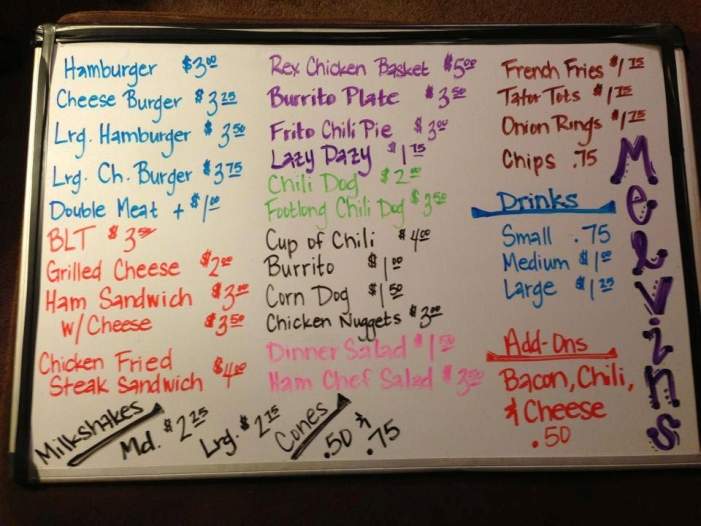 Hamburger $3.00
Cheese Burger $3.25
Lrg. Hamburger $3.50
Lrg. Ch. Burger $3.75
Double Meat + $1.00
BLT $3.50
Grilled Cheese $2.00
Ham Sandwich $3.00
w/ Cheese $3.50
Chicken Fried
Steak Sandwich $4.00
Rex Chicken Basket $5.00
Burrito Plate $3.50
Frito Chili Pie $3.00
Lazy Dazy $1.75
Chili Dog $2.00
Footlong Chili Dog $3.50
Cup of Chili $4.00
Burrito $1.00
Corn Dog $1.50
Chicken Nuggets $3.00
Dinner Salad $1.50
Ham Chef Salad $3.00
French Fries $1.75
Tator Tots $1.75
Onion Rings $1.75
Chips .75
Drinks
Small .75
Medium $1.00
Large $1.25
Add-Ons
Bacon, Chili,
& Cheese
.50
Melvins
Milkshakes
Md. $2.25
Lrg. $2.75
Cones
.50 & .75